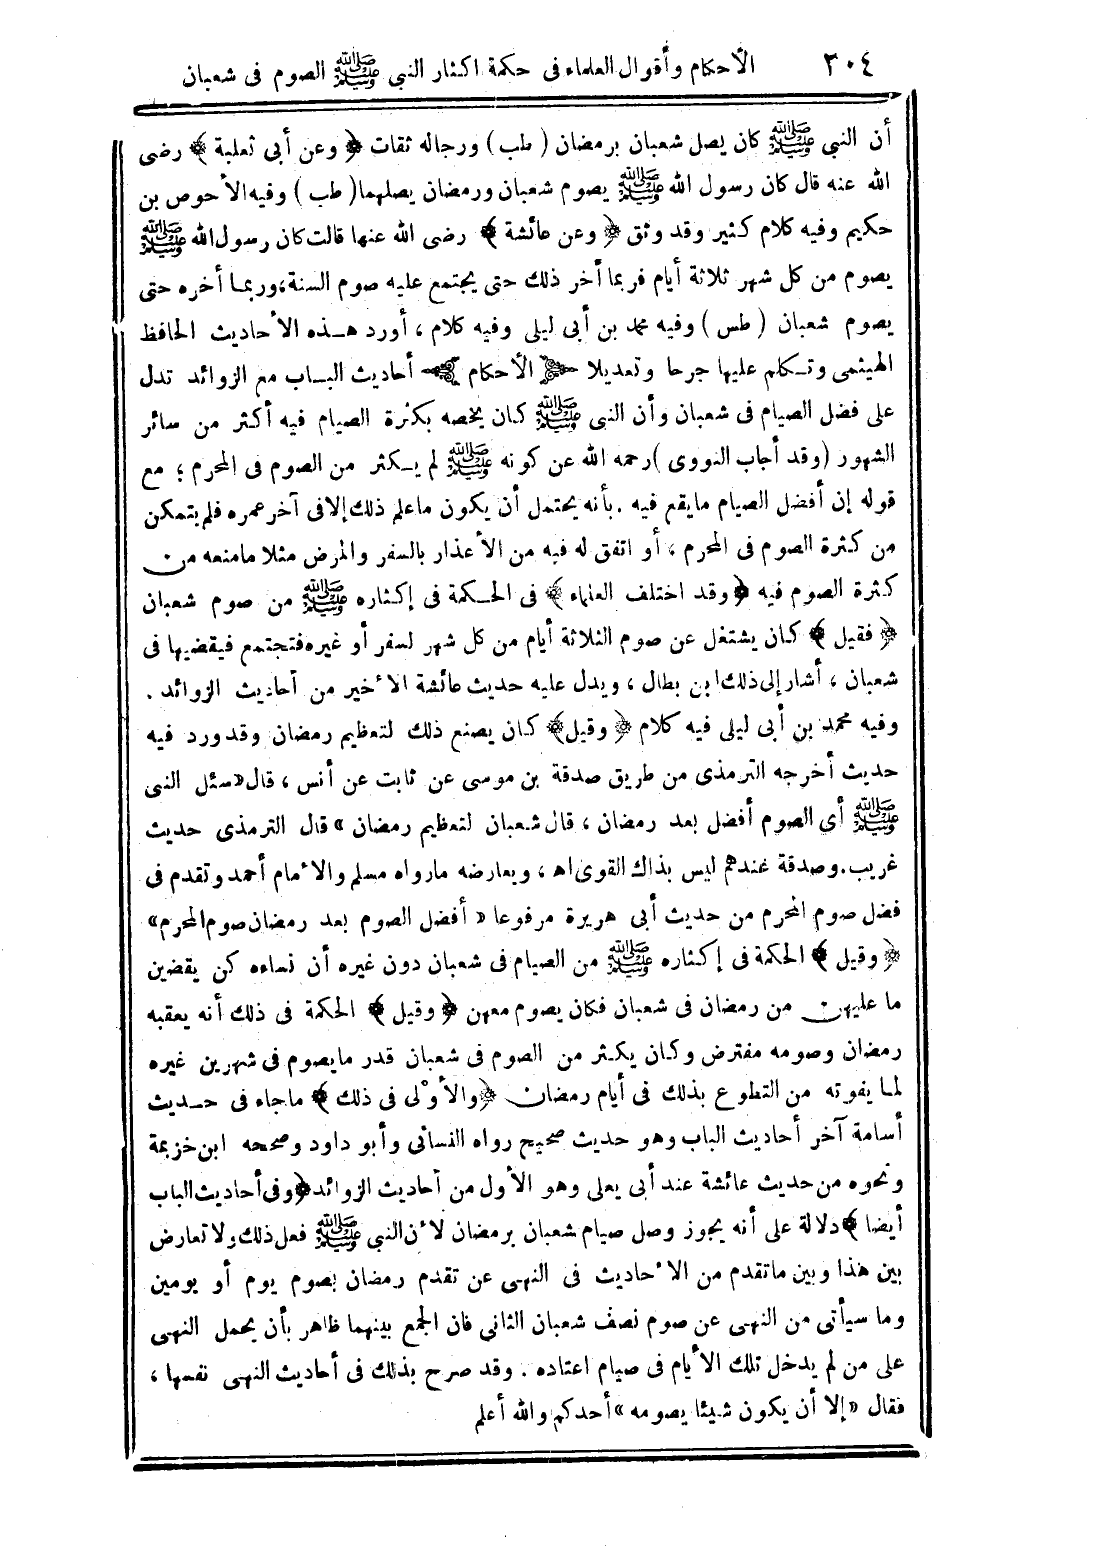 ٣٠٤ الأحكام وأقوال العلماء فى حكمة اكثار النبى ﷺ الصوم فى شعبان
أن النبى ﷺ كان يصل شعبان برمضان ( طب ) ورجاله ثقات ﴿ وعن أبى ثعلبة ﴾ رضى
الله عنه قال كان رسول الله ﷺ يصوم شعبان ورمضان يصلهما ( طب ) وفيه الأحوص بن
حكيم وفيه كلام كثير وقد وثق ﴿ وعن عائشة ﴾ رضى الله عنها قالت كان رسول الله ﷺ
يصوم من كل شهر ثلاثة أيام فربما أخر ذلك حتى يجتمع عليه صوم السنة، وربما أخره حتى
يصوم شعبان ( طس ) وفيه محمد بن أبى ليلى وفيه كلام ، أورد هـذه الأحاديث الحافظ
الهيثمى وتـكلم عليها جرحا وتعديلا ﴿ الأحكام ﴾ أحاديث البـاب مع الزوائد تدل
على فضل الصيام فى شعبان وأن النبى ﷺ كان يخصه بكثرة الصيام فيه أكثر من سائر
الشهور ( وقد أجاب النووى ) رحمه الله عن كونه ﷺ لم يـكثر من الصوم فى المحرم ؛ مع
قوله إن أفضل الصيام مايقع فيه . بأنه يحتمل أن يكون ماعلم ذلك إلا فى آخر عمره فلم يتمكن
من كثرة الصوم فى المحرم ، أو اتفق له فيه من الأعذار بالسفر والمرض مثلا مامنعه من
كثرة الصوم فيه ﴿ وقد اختلف العلماء ﴾ فى الحـكمة فى إكثاره ﷺ من صوم شعبان
﴿ فقيل ﴾ كـان يشتغل عن صوم الثلاثة أيام من كل شهر لسفر أو غيره فتجتمع فيقضيها فى
شعبان ، أشار إلى ذلك ابن بطال ، ويدل عليه حديث عائشة الأخير من أحاديث الزوائد .
وفيه محمد بن أبى ليلى فيه كلام ﴿ وقيل ﴾ كـان يصنع ذلك لتعظيم رمضان وقد ورد فيه
حديث أخرجه الترمذى من طريق صدقة بن موسى عن ثابت عن أنس ، قال «سئل النبى
ﷺ أي الصوم أفضل بعد رمضان ، قال شعبان لتعظيم رمضان » قال الترمذى حديث
غريب . وصدقة عندهم ليس بذاك القوى اهـ ، ويعارضه مارواه مسلم والأمام أحمد وتقدم فى
فضل صوم المحرم من حديث أبى هريرة مرفوعا « أفضل الصوم بعد رمضان صوم المحرم »
﴿ وقيل ﴾ الحكمة فى إكـثاره ﷺ من الصيام فى شعبان دون غيره أن نساءه كن يقضين
ما عليهن من رمضان فى شعبان فكان يصوم معهن ﴿ وقيل ﴾ الحكمة فى ذلك أنه يعقبه
رمضان وصومه مفترض وكان يكثر من الصوم فى شعبان قدر مايصوم فى شهرين غيره
لمـا يفوته من التطوع بذلك فى أيام رمضان ﴿ والأوْلى فى ذلك ﴾ ماجاء فى حـديث
أسامة آخر أحاديث الباب وهو حديث صحيح رواه النسائى وأبو داود وصححه ابن خزيمة
ونحوه من حديث عائشة عند أبى يعلى وهو الأول من أحاديث الزوائد ﴿ وفى أحاديث الباب
أيضا ﴾ دلالة على أنه يجوز وصل صيام شعبان برمضان لأن النبى ﷺ فعل ذلك ولا تعارض
بين هذا وبين ماتقدم من الأحاديث فى النهى عن تقدم رمضان بصوم يوم أو يومين
وما سيأتى من النهى عن صوم نصف شعبان الثانى فان الجمع بينهما ظاهر بأن يحمل النهى
على من لم يدخل تلك الأيام فى صيام اعتاده . وقد صرح بذلك فى أحاديث النهى نفسها ،
فقال « إلا أن يكون شيئا يصومه » أحدكم والله أعلم